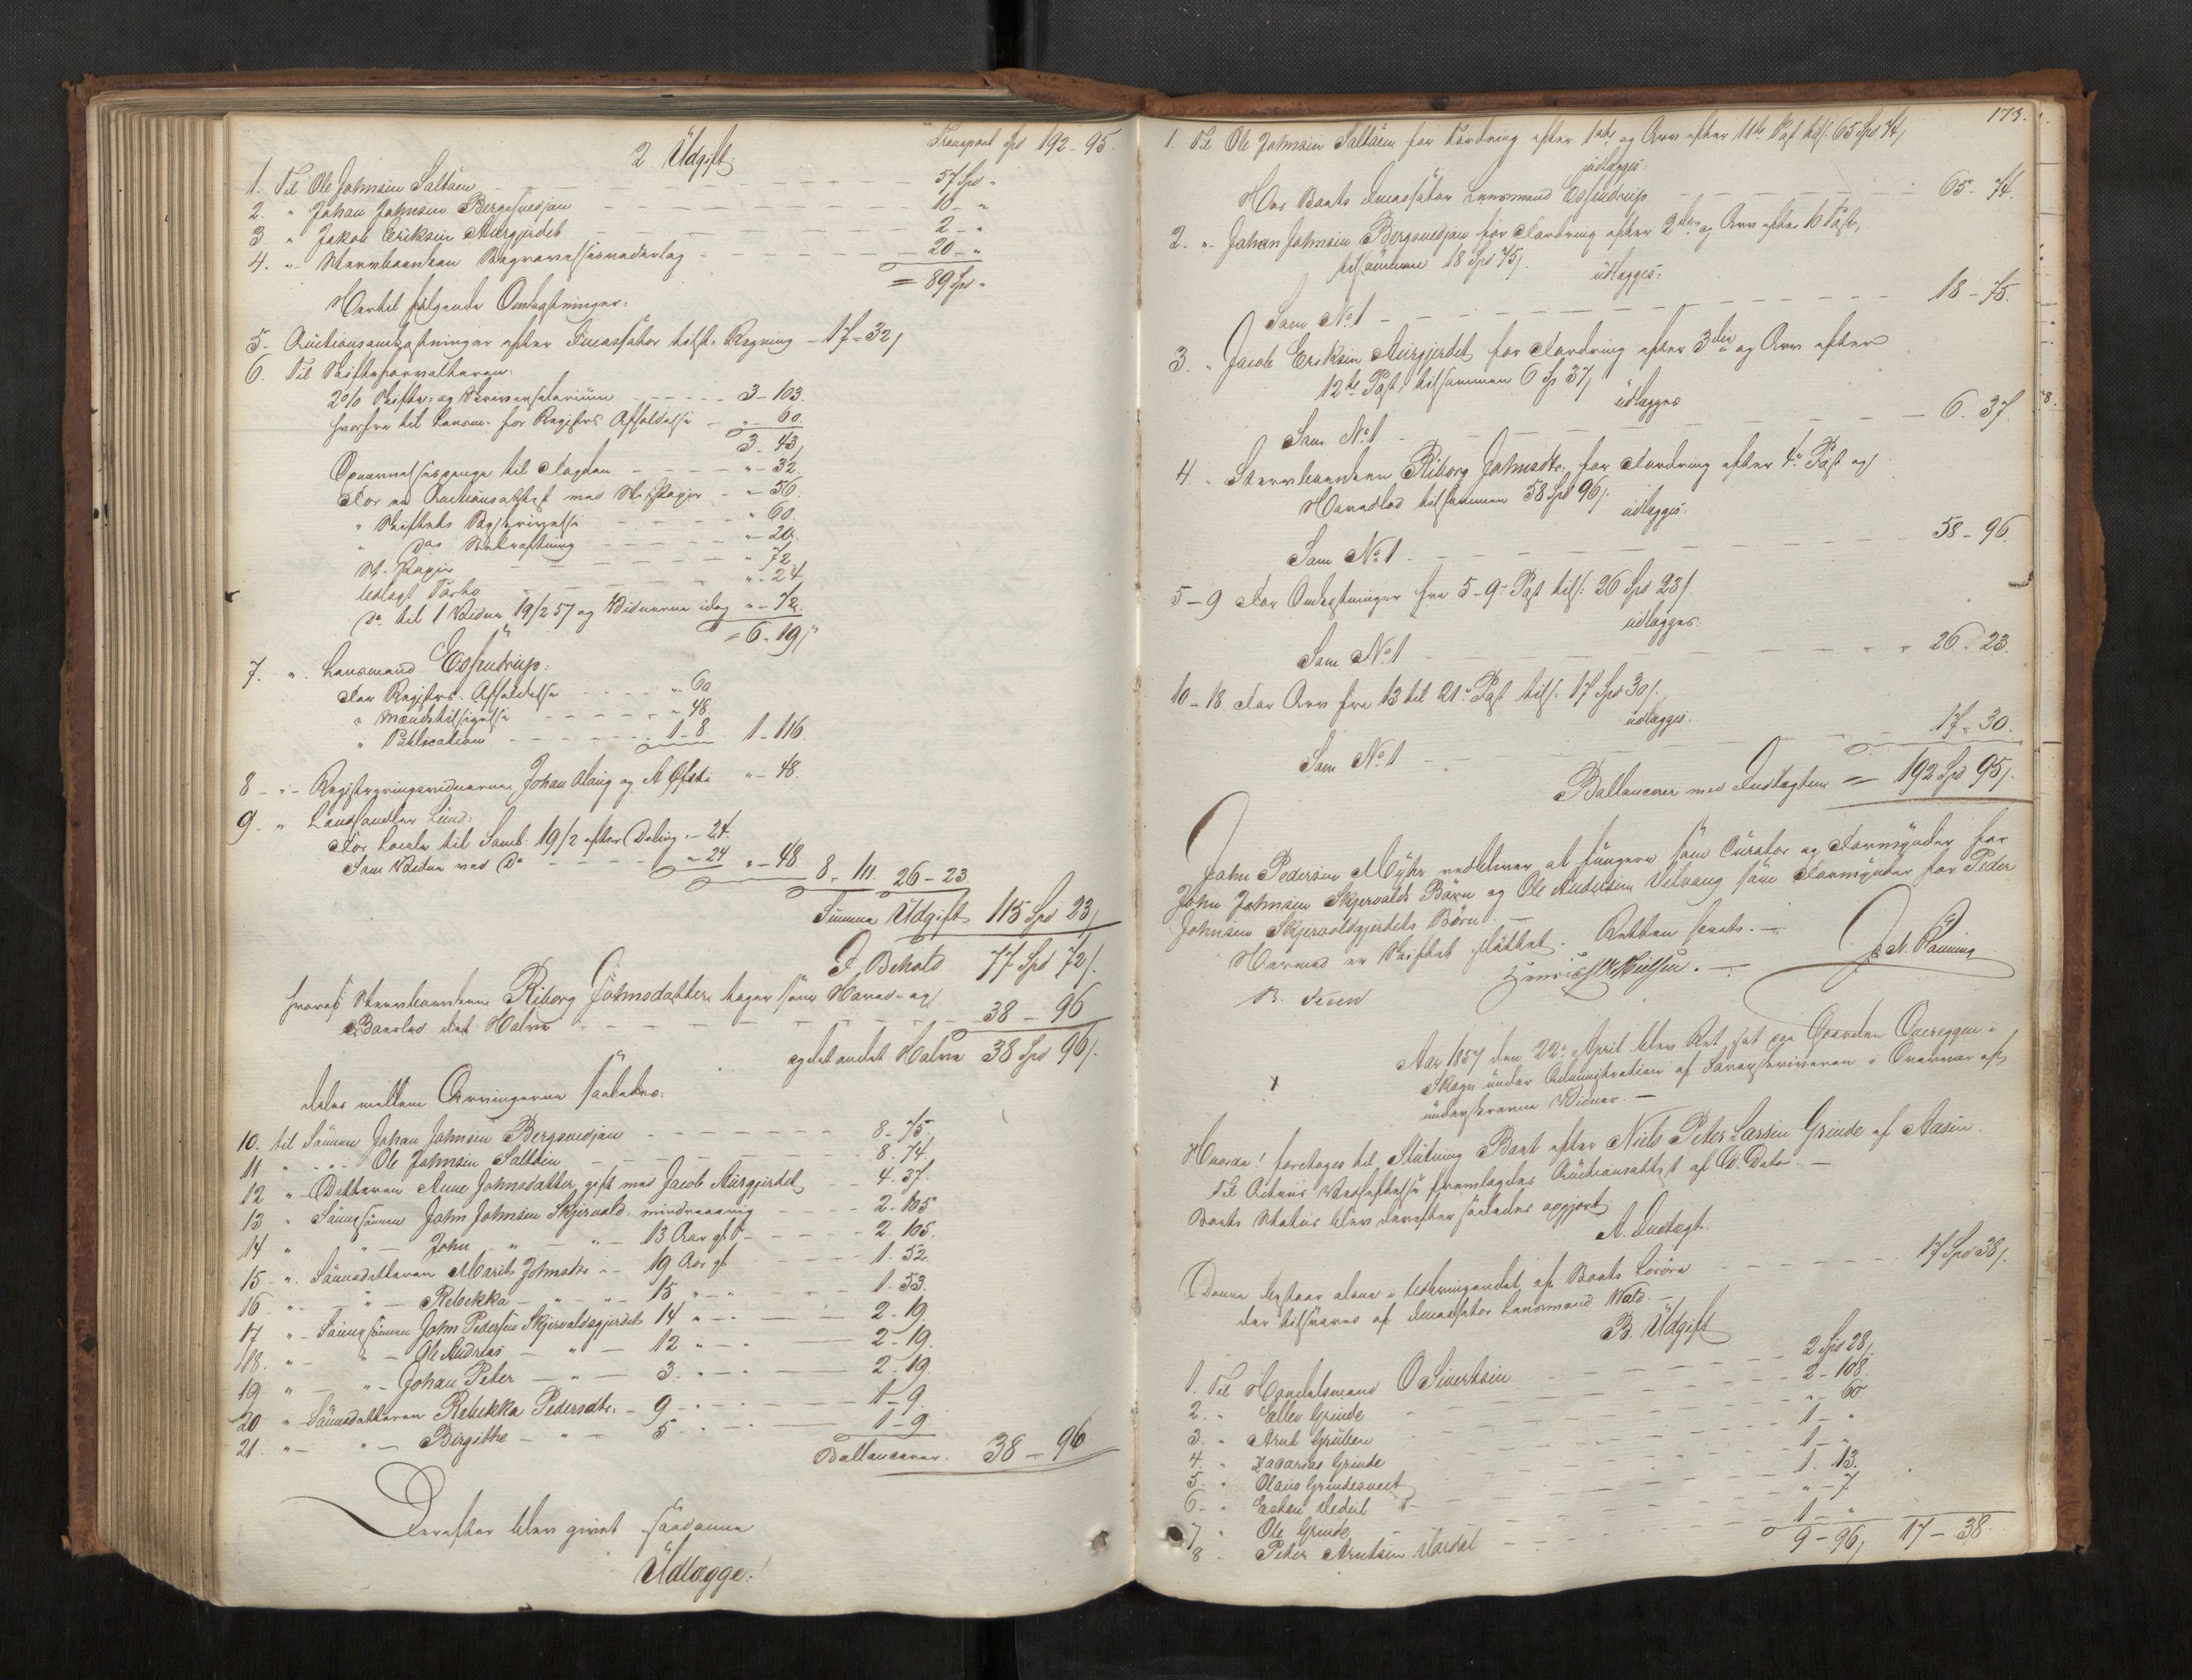 Transport Spd 192-95.
2 Udgift:
1. Til Ole Johnsen Saltøen — 57 Spd "
2. " Johan Johnsen Bergsvedjan — 10 - "
3. " Jakob Eriksen Aurgjerdet — 2 - "
4. " Stervboenken Begravelsesvederlag — 20 - "
= 89 Spd "
Hertil følgende Omkostninger:
5- Auctionsomkostninger efter Incassators Regning — 17-32
6. Til Skifteforvalteren:
2% Skifte- og Skriversalarium — 3-103.
hvorfra til Lensm. for Registrs Afholdelse — " 60.
3-43
til Fogden — "-32.
For en Auctionsattest med St. Papir — "-56.
" Skiftets Beskrivelse — " 60.
" Do — "-20.
St. Papir — " 72.
Udlagt Porto — "-24.
Do til 1 Vidne 19/2 57 og Vidnerne idag "-72.
= 6-19
7. " Lensmand
For Registrs Afholdelse — "-60
" — "-48.
" Publication — 1-8. 1-116.
8 - " - Registreringsvidnerne Johan Haug og — "-48.
9- " Landhandler Lund:
For Locale til Saml. 19/2 efter Deling "-24.
Som Vidne ved Do — "-24 "-48 8. 111. 26-23
Summa Udgift 115 Spd 23
I Behold 77 Spd 72
hvoraf Stervboenken Riborg Johnsdatter tager som Hoved- og
Boeslod det Halve — 38-96
og det andet Halve 38 Spd 96
deles mellem Arvingerne saaledes:
10. til Sønnen Johan Johnsen Bergsvedjan — 8-75.
11 " - " - Ole Johnsen Saltøen — 8-74.
12 " - Datteren Anne Johnsdatter gift med Jacob Aurgjerdet — 4-37.
13 " Sønnesønnen John Johnsen Skjervold mindreaarig — 2-105
14 " " - John " — " - 13 Aar gl — 2-105.
15 - ". Sønnedatteren Marit Johnsdtr " - 19 Aar gl — 1-52.
16 - " — " — Rebekka — " — " 15 " - " — 1-53.
17 " - Sønnesønnen John Pedersen Skjervoldsgjerdet 14 " - " — 2-19.
18. " - " - Ole Andreas — " — 12 " - " — 2-19.
19 " — " - Johan Peter — " — 3. " - " — 2-19.
20 " Sønnedatteren Rebekka Pedersdtr. - 9 - " — 1-9.
21. " - " — Birgithe — " — 5 — 1-9
Ballancerer. 38-96
Derefter blev givet saadanne
Udlægge:
173.
1. Til Ole Johnsen Saltøen for Fordring efter 1ste og Arv efter 11te Post tils: 65 Spd 74,
udlægges:
Hos Boets Incassator Lensmand — 65-74.
2. " - Johan Johnsen Bergsvedjan for Fordring efter 2den og Arv efter 10 Post,
tilsammen 18 Spd 75
udlægges:
Som No 1 — 18-75.
3. " Jacob Eriksen Aurgjerdet for Fordring efter 3die og Arv efter
12te Post, tilsammen 6 Sp 37
udlægges
Som No 1 — 6. 37.
4. " Stervboenken Riborg Johnsdtr. for Fordring efter 4de Post og
Hovedlod tilsammen 58 Spd 96
udlægges:
Som No 1 — 58-96.
5-9 For Omkostninger fra 5-9de Post tils: 26 Spd 23
udlægges:
Som No 1 — 26-23.
10-18 For Arv fra 13 til 21de Post tils: 17 Spd 30
udlægges.
Som No 1 — 17-30.
Ballancerer med Indtægten = 192 Spd 95
John Pedersen Myhr vedbliver at fungere som Curator og Formynder for
John Johnsen Skjervolds Børn og Ole Andersen som Formynder for Peder
Johnsen Skjervoldsgjerdets Børn. —
Hermed er Skiftet sluttet. Retten hævet. —
Henrich Nielsen. —
Aar 1857 den 22de April blev Ret sat paa Gaarden Overeggen i
Skogn under Administration af Sorenskriveren i Overvær af
underskrevne Vidner. —
Hvorda! foretoges til Slutning Boet efter Niels Peter Larsen Grinde af Aasen.
Til Actens Vedheftelse fremlagdes Auctionsattest af D. Dato. —
Boets Status blev derefter saaledes opgjort:
A. Indtægt.
Denne bestaar alene i Udbringendet af Boets Løsøre — 17 Spd 38
der tilsvares af Incassator Lensmand —
B. Udgift
1. Til Handelsmand O Sivertsen — 2 Spd 28
2. " Ellev Grinde — 2-108.
3. " Arnt — "-60
4. " Zacarias Grinde — 1-"
5. " Olaus — 1-"
6- " Esten — 1. 13.
7 " Ole Grinde — "-7
8 - Peter Arntsen — 1-"
9-96, 17-38.